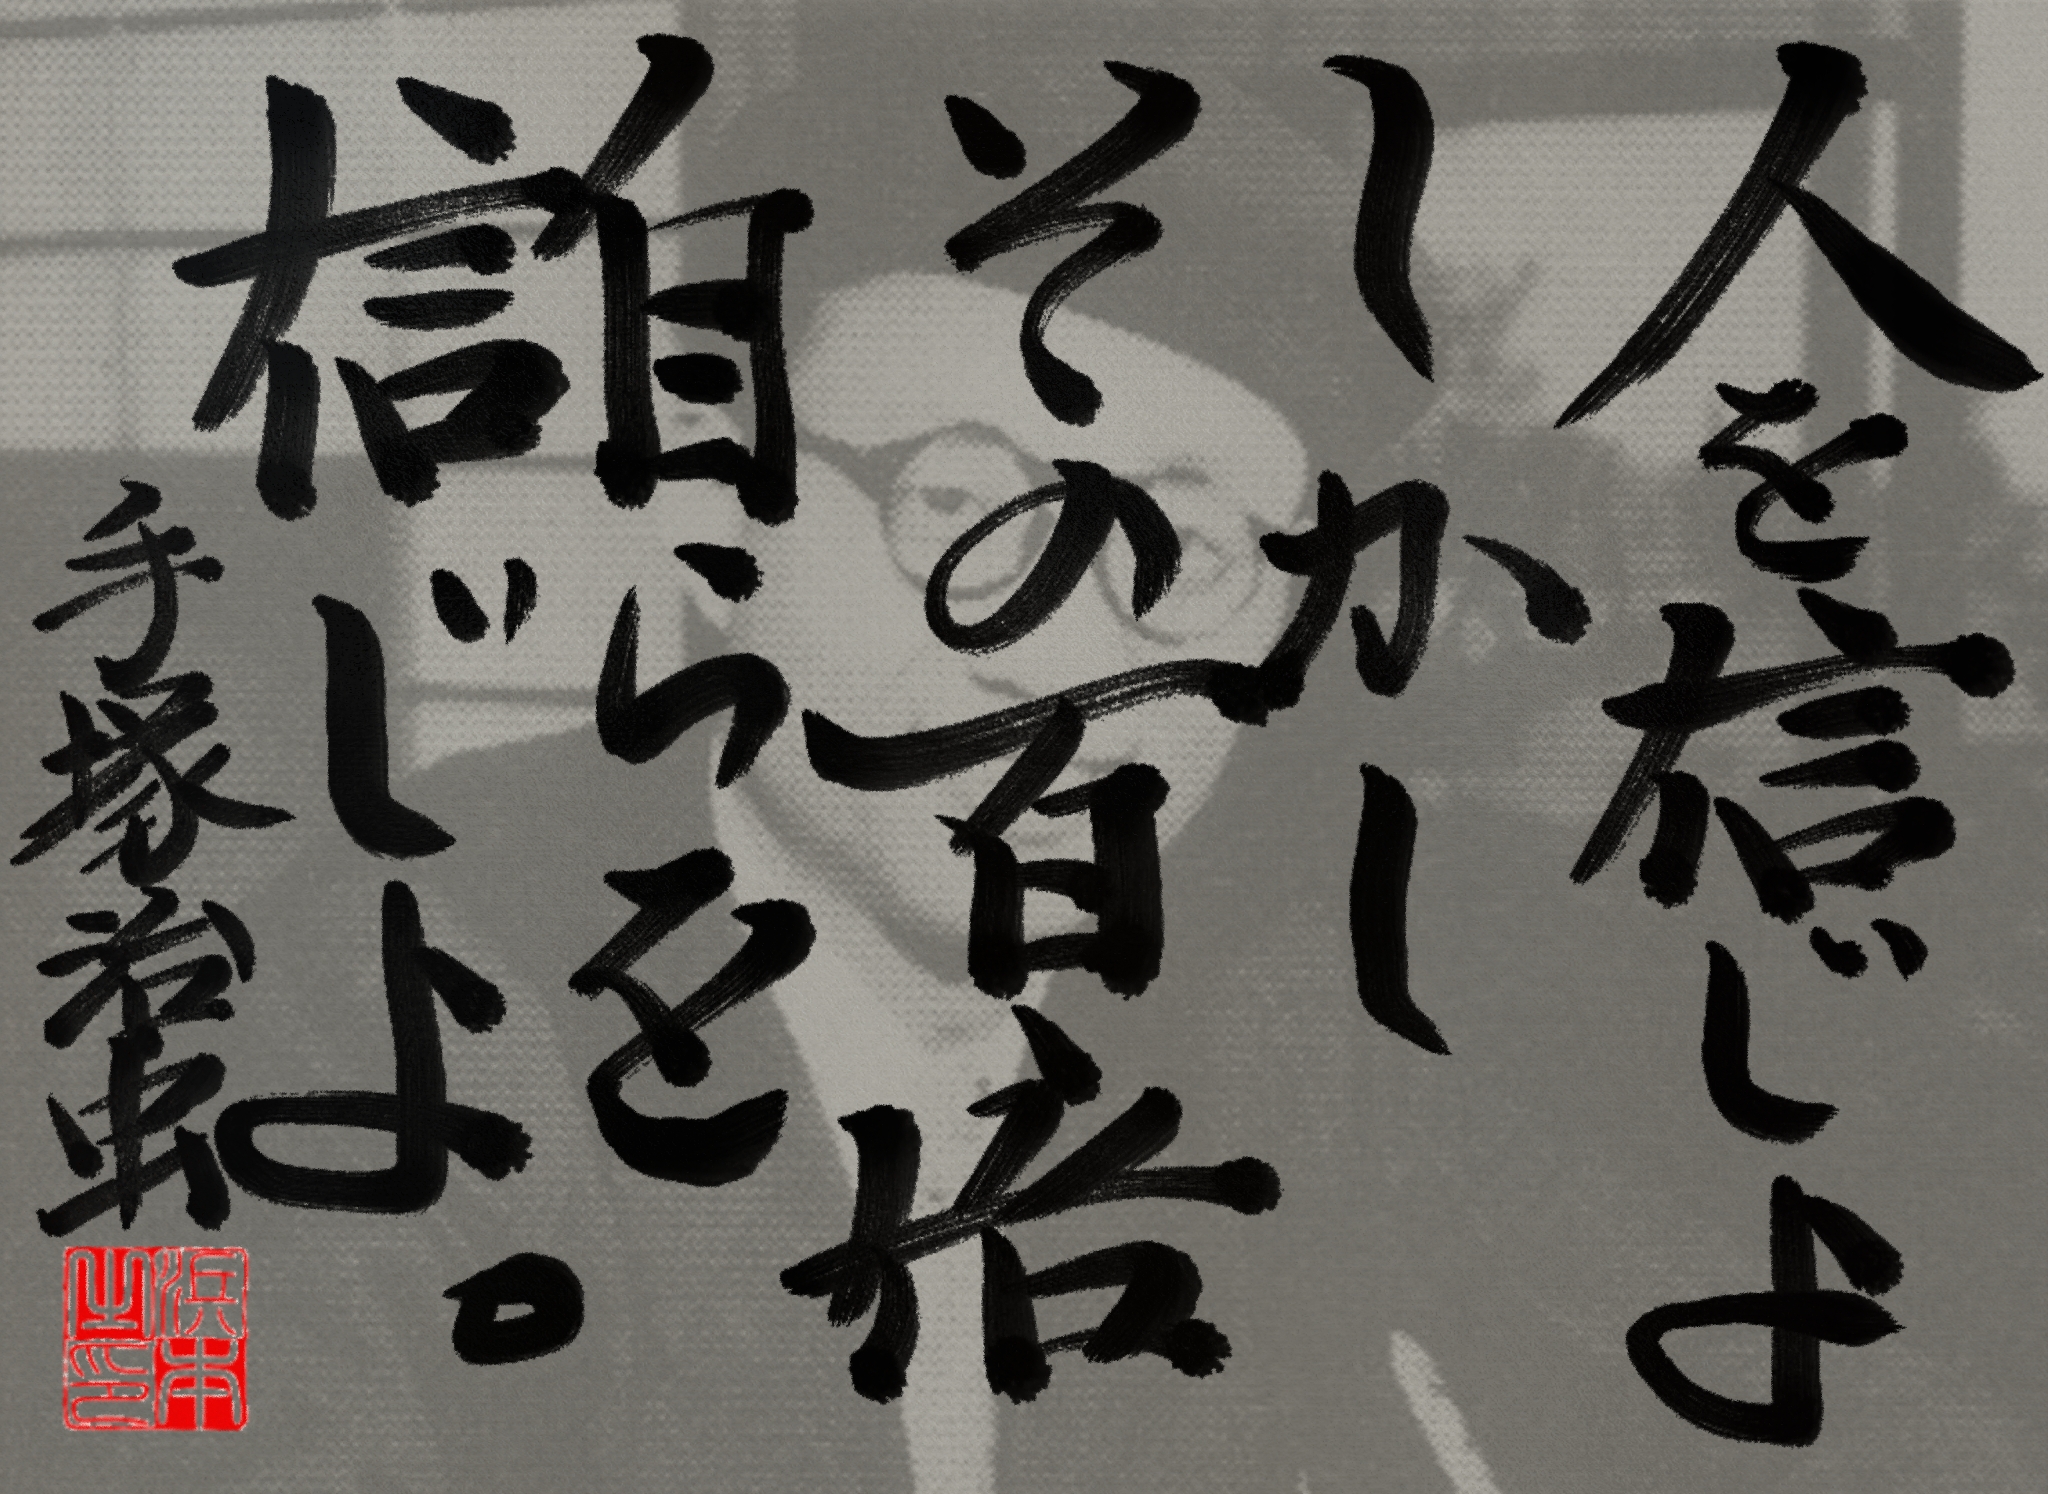 人を信じよ
しかし
その百倍
自らを
信じよ。
手塚治虫
浜本
之印